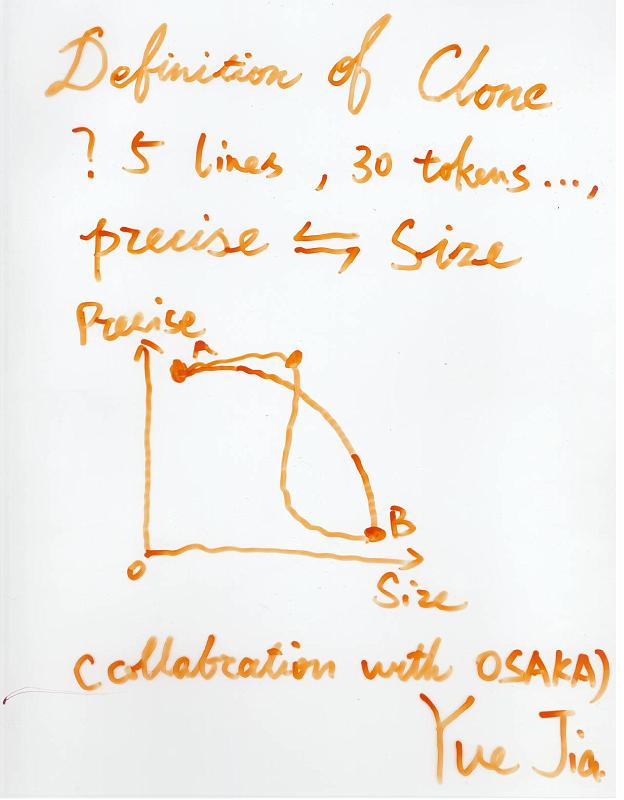 Definition of Clone
? 5 lines, 30 tokens...,
precise ⇆ Size
Precise
A
B
O
Size
(collabration with OSAKA)
Yue Jia.